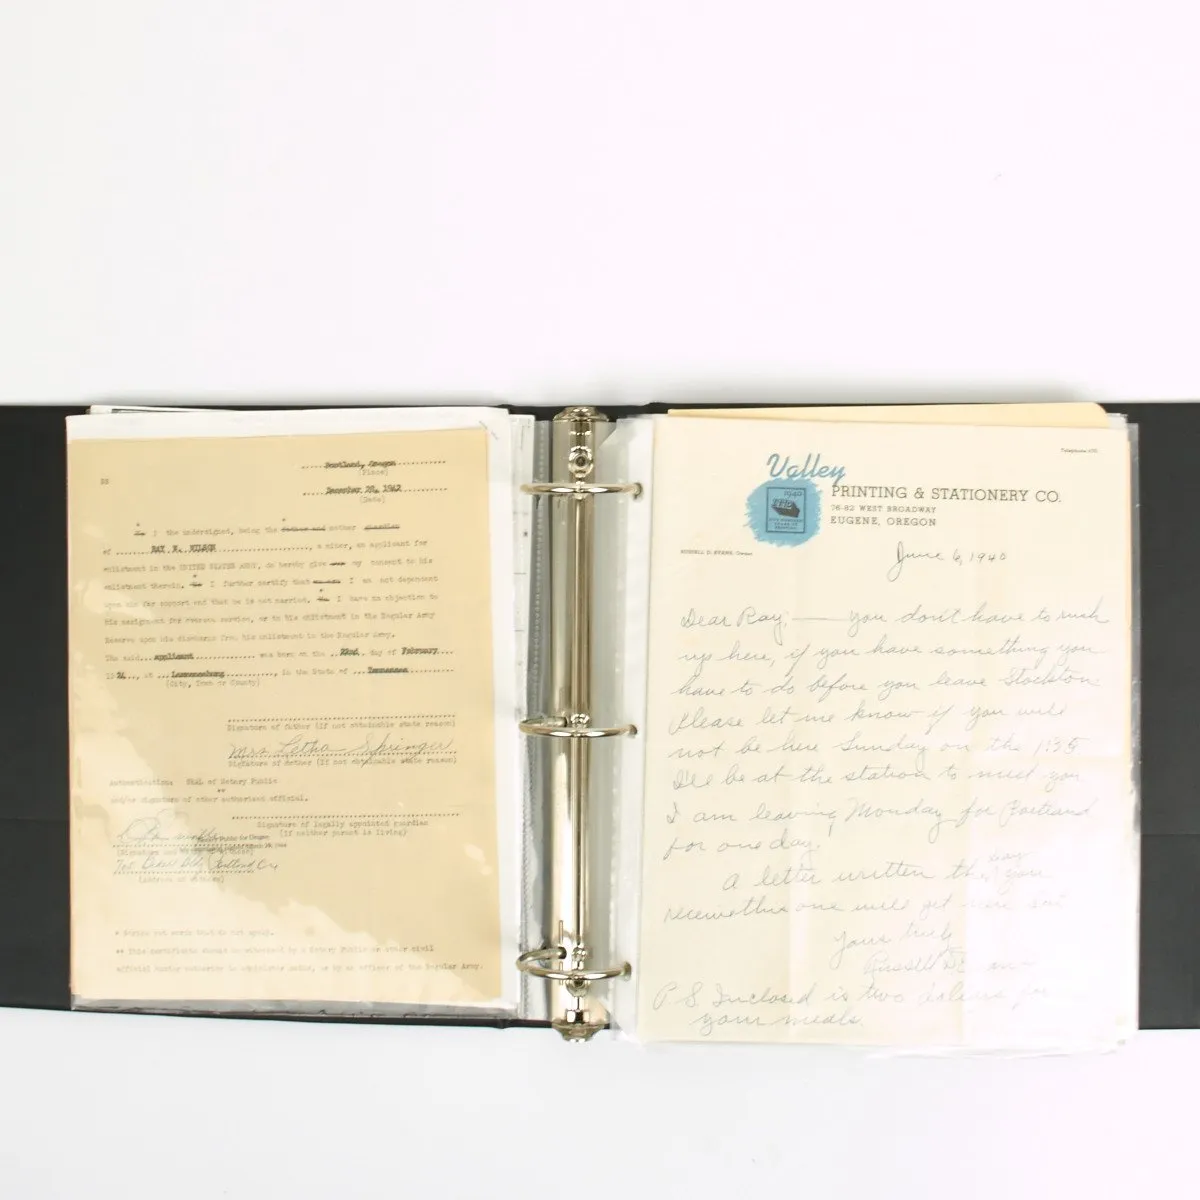 Portland, Oregon
(Place)
RN
December 28, 1942
(Date)
I the undersigned, being the father and mother guardian
of RAY E. WILSON, a minor, an applicant for
enlistment in the UNITED STATES ARMY, do hereby give our my consent to his
enlistment therein. We I further certify that I am not dependent
upon him for support and that he is not married. We I have no objection to
his assignment for oversea service, or to his enlistment in the Regular Army
Reserve upon his discharge from his enlistment in the Regular Army.
The said applicant was born on the 22nd day of February
1924, at, in the State of Tennessee
(City, Town or County)
Signature of father (if not obtainable state reason)
Mrs Letha Springer
Signature of mother (if not obtainable state reason)
Authentication: SEAL of Notary Public
**
and/or signature of other authorized official.
Signature of legally appointed guardian
(If neither parent is living)
Notary Public for Oregon
(Signature and
Portland Ore
(Address of
* Strike out words that do not apply.
** This certificate should be witnessed by a Notary Public or other civil
official under authority to administer oaths, or by an officer of the Regular Army.
Telephone
Valley
PRINTING & STATIONERY CO.
76-82 WEST BROADWAY
EUGENE, OREGON
1940
RUSSELL D. EVANS, Owner
June 6, 1940
Dear Ray; — you don't have to rush
up here, if you have something you
have to do before you leave Stockton.
Please let me know if you will
not be here Sunday on the 1:35
I'll be at the station to meet you
I am leaving Monday for Portland
for one day.
A letter written the day you
receive this one will get here Sat
Yours truly
Russell D E
P S Inclosed is two dollars for
your meals.